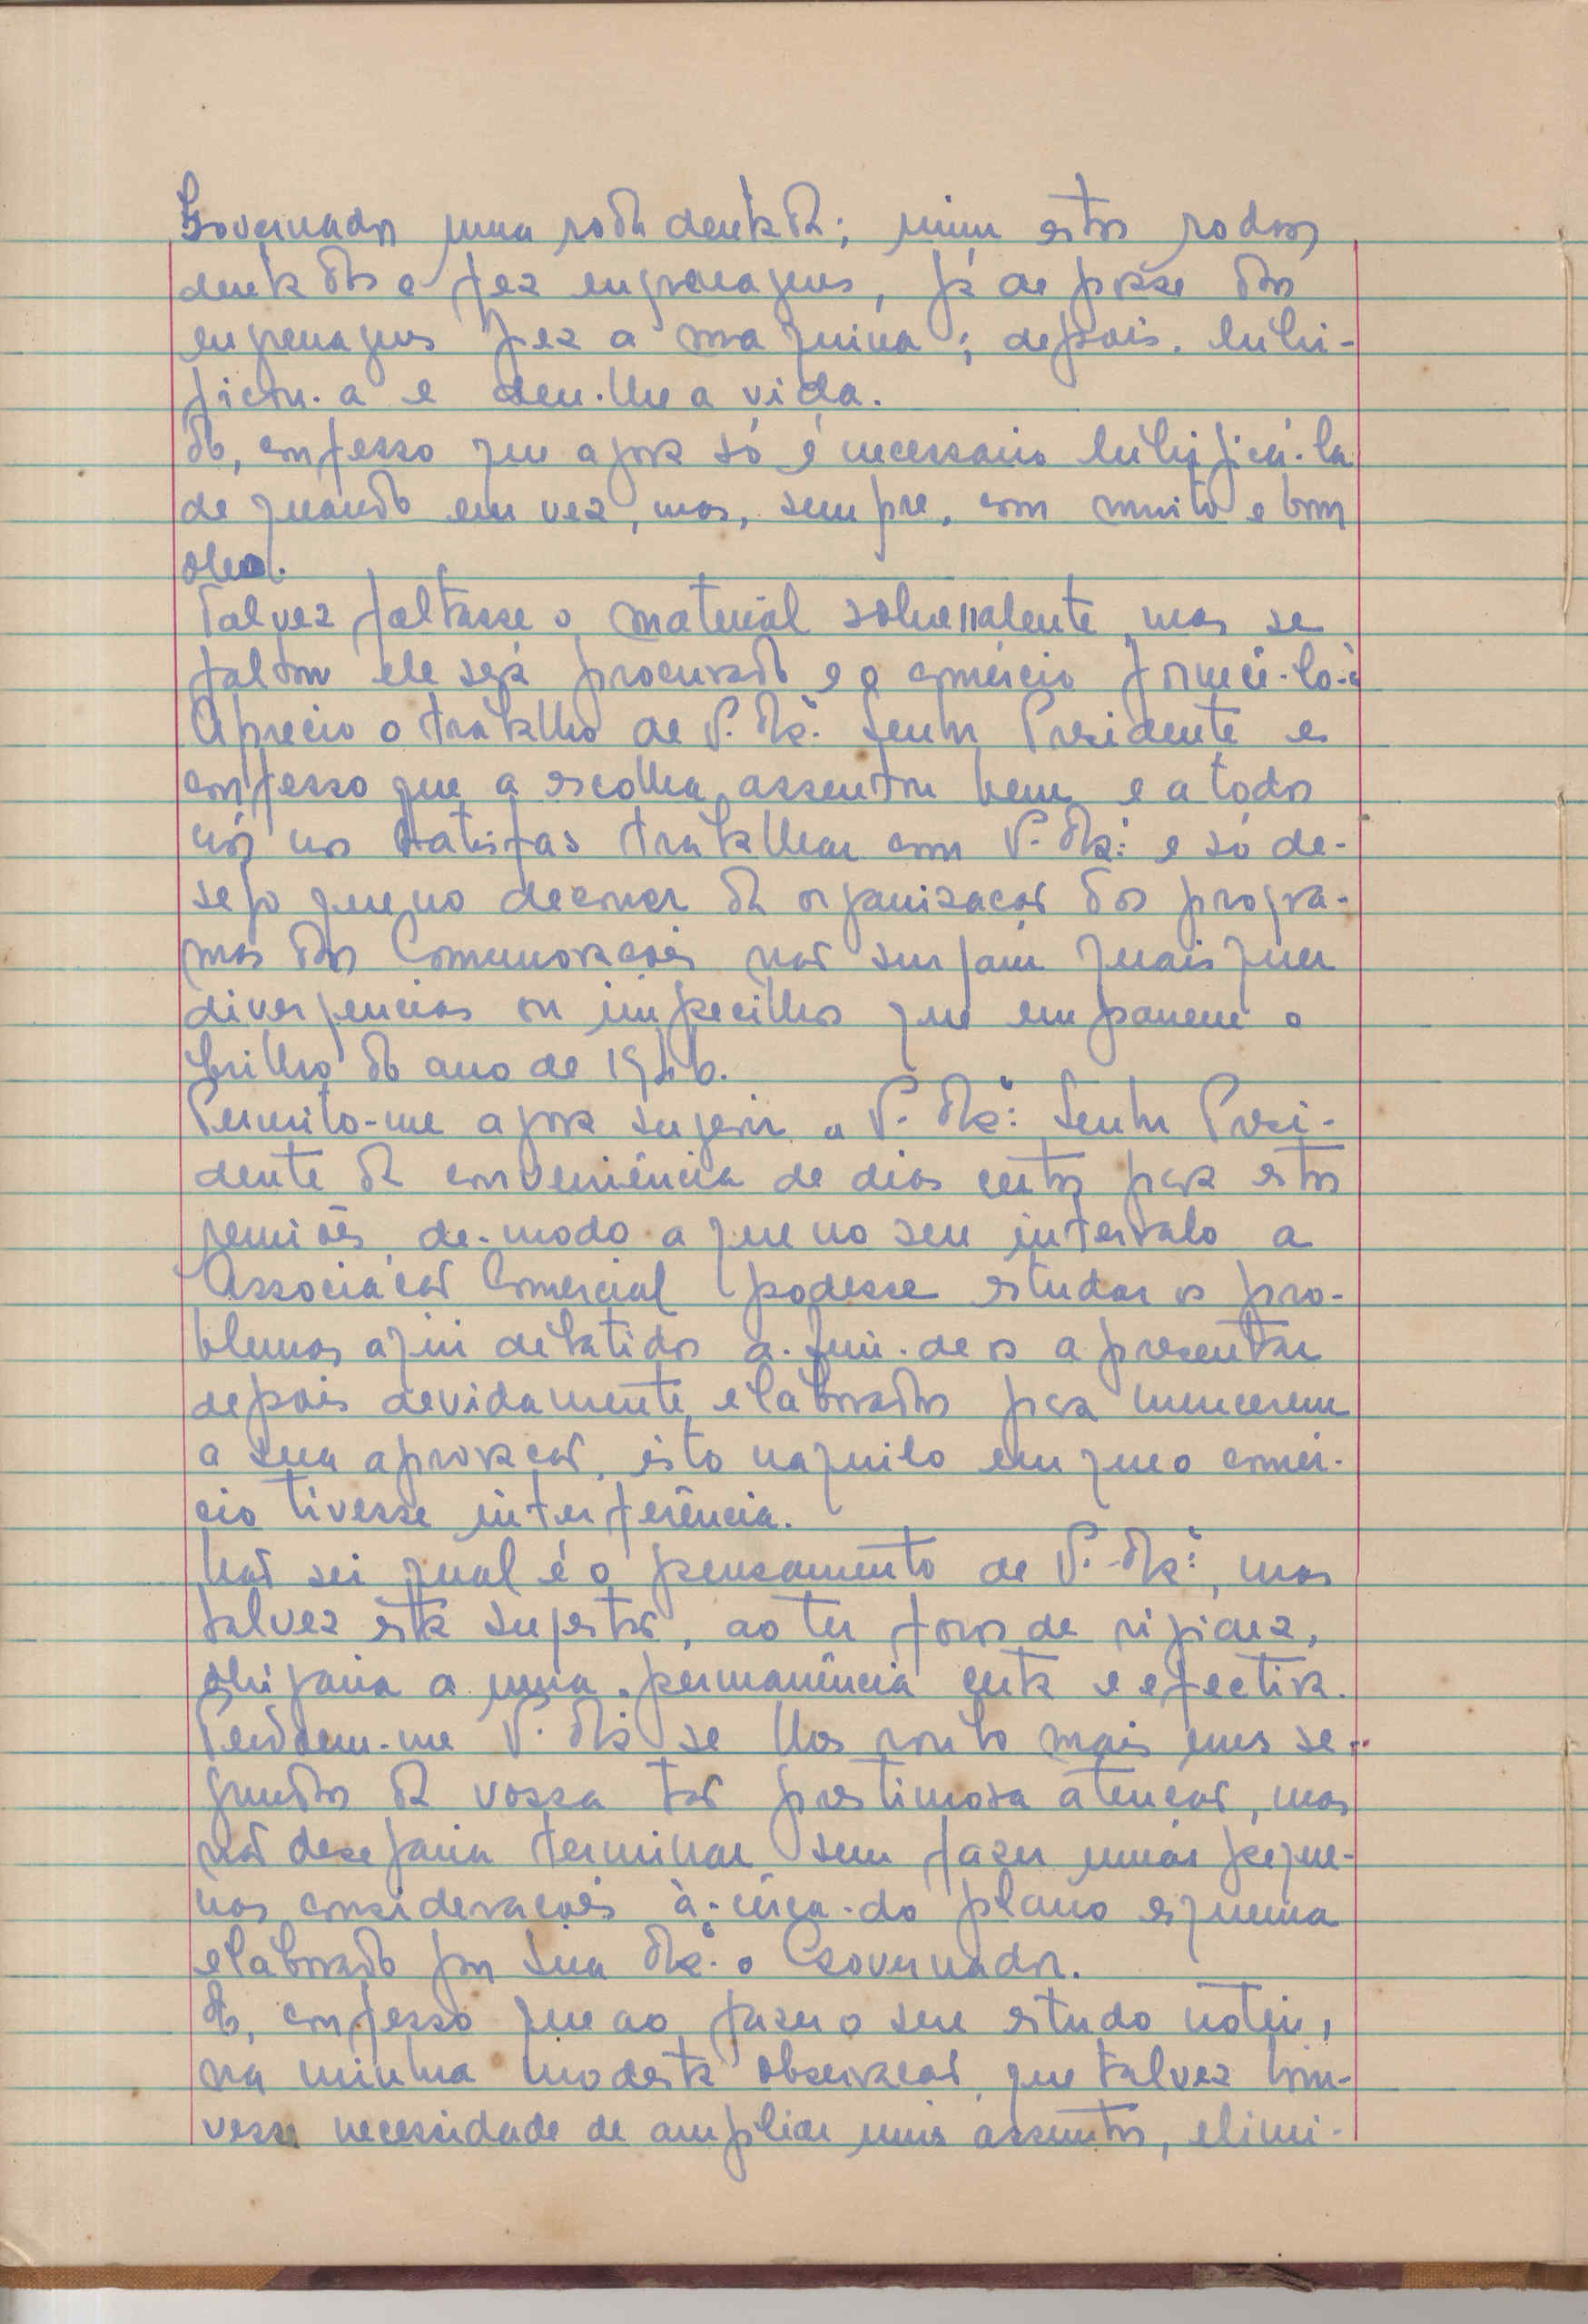 Governador uma roda dentada; uniu estas rodas
dentadas e fez engrenagens, já de posse das
engrenagens fez a maquina; depois. lubri-
ficou-a e deu-lhe a vida.
confesso que agora só é necessario lubrificá-la
de quando em vez, mas, sempre, com muito e bom
oleo.
Talvez faltasse o material sobressalente, mas se
faltou ele será procurado e o comércio fornecê-lo-á
Aprecio o trabalho de V. Exa. Senhor Presidente e
confesso que a escolha assentou bem e a todos
nós nos satisfas trabalhar com V. Exa. e só de-
sejo que no decorrer da organização dos progra-
mas das Comemorações não surjam quaisquer
divergencias ou impecilhos que empanem o
brilho do ano de 1946.
Permito-me agora sugerir a V. Exa. Senhor Presi-
dente da conveniência de dias certos para estas
reuniões, de-modo a que no seu intervalo a
Associação Comercial podesse estudar os pro-
blemas aqui debatidos a-fim-de os apresentar
depois devidamente elaborados para merecerem
a sua aprovação, isto naquilo em que o comér-
cio tivesse interferência.
Não sei qual é o pensamento de V. Exa., mas
talvez esta sugestão, ao ter foros de rigidez,
obrigaria a uma permanência certa e efectiva.
Perdoem-me V. Exas se lhes roubo mais uns se-
gundos da vossa tão prestimosa atenção, mas
não desejaria terminar sem fazer umas peque-
nas considerações à-cêrca-do plano esquema
elaborado por Sua Exa. o Governador.
confesso que ao fazer o seu estudo notei,
na minha modesta observação, que talvez hou-
vesse necessidade de ampliar uns assuntos, elimi-